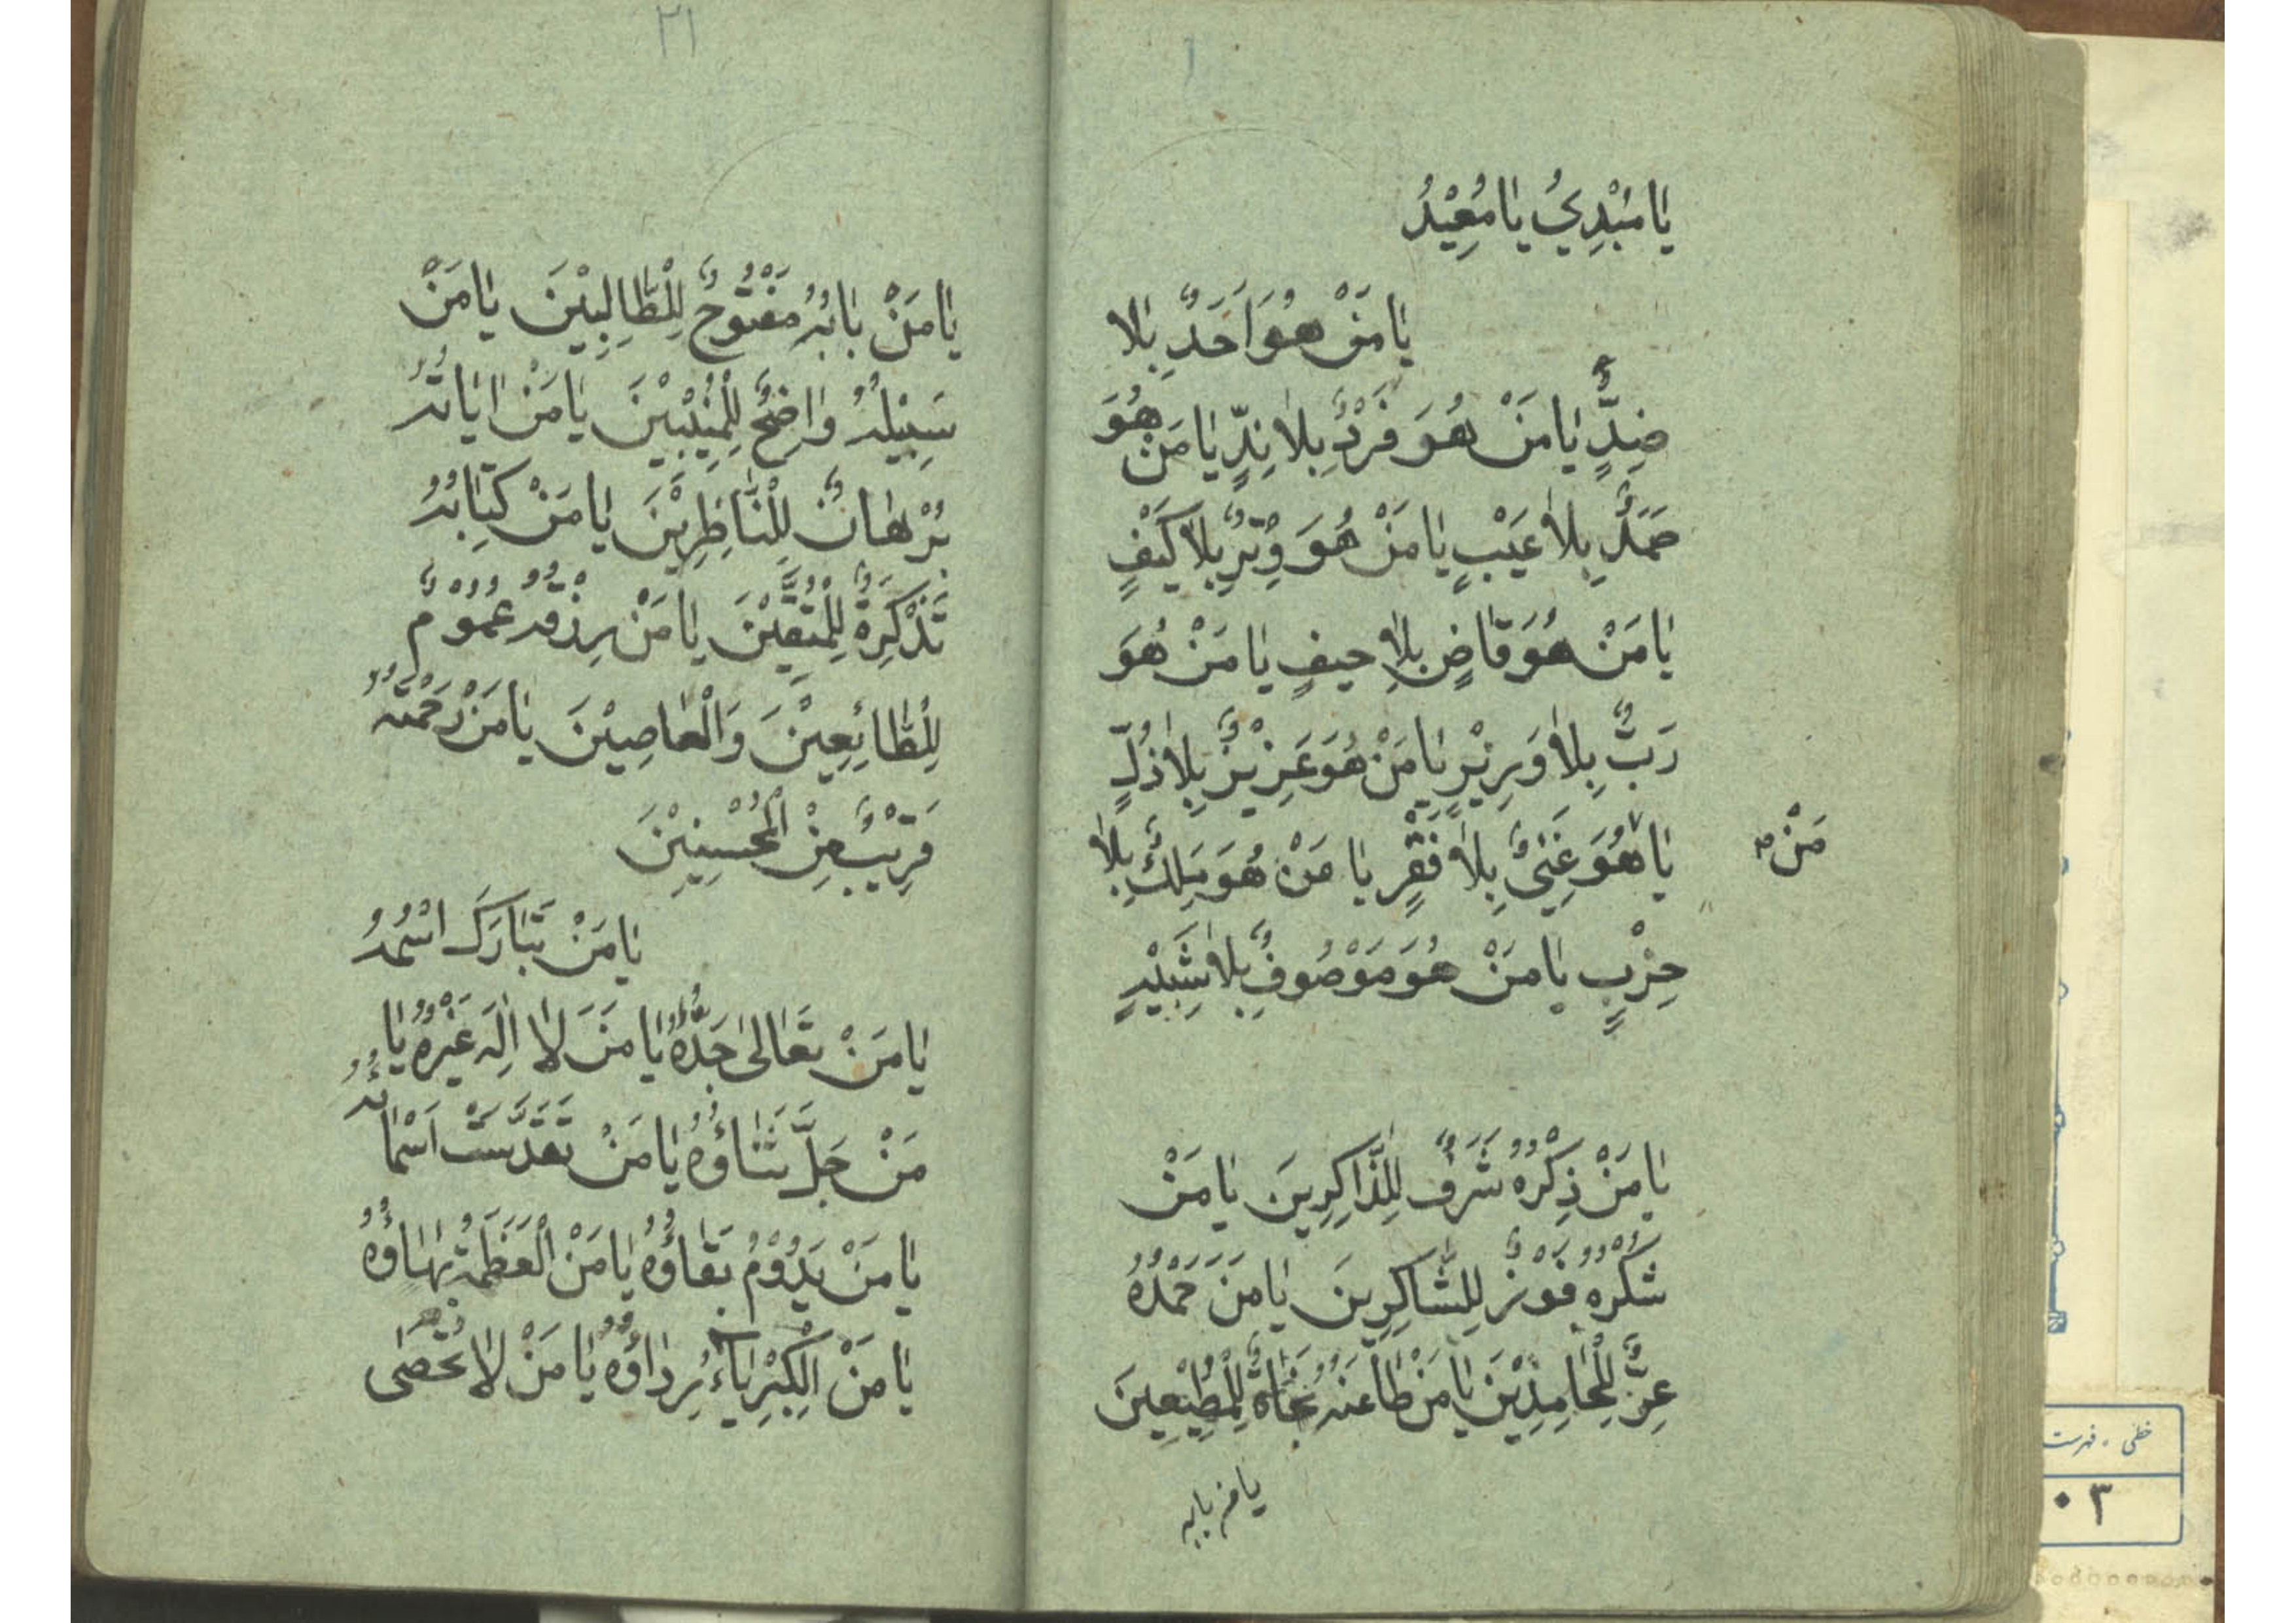 يٰا مُبْدِئُ يٰا مُعِيْدُ
يٰا مَنْ هُوَ اَحَدٌ بِلا
ضِدٍّ يٰا مَنْ هُوَ فَرْدٌ بِلاٰ نِدٍّ يٰا مَنْ هُوَ
صَمَدٌ بِلاٰ عَيْبٍ يٰا مَنْ هُوَ وِتْرٌ بِلاٰ كَيْفٍ
يٰا مَنْ هُوَ قٰاضٍ بِلاٰ حيفٍ يٰا مَنْ هُوَ
رَبٌّ بِلاٰ وَزِيْرٍ يٰا مَنْ هُوَ عَزِيْزٌ بِلاٰ ذُلٍّ
يٰا هُوَ غَنِىٌّ بِلاٰ فَقْرٍ يٰا مَنْ هُوَ مَلِكٌ بِلاٰ
مَنْ
حِزْبٍ يٰا مَنْ هُوَ مَوْصُوفٌ بِلاٰ شَبِيْهٍ
يٰا مَنْ ذِكْرُهُ شَرَفٌ لِلذّٰاكِرِينَ يٰا مَنْ
شُكْرُهُ فَوْزٌ لِلشّٰاكِرِينَ يٰا مَنْ حَمْدُهُ
عِزٌّ لِلْحٰامِدِيْنَ يٰا مَنْ طٰاعَتُهُ نَجٰاةٌ لِلْمُطِيْعِينَ
يا من بابه
٢١
يٰا مَنْ بٰابُهُ مَفْتُوحٌ لِلْطّٰالِبِيْنَ يٰا مَنْ
سَبِيْلُهُ وٰاضِحٌ لِلْمُنِيْبِيْنَ يٰا مَنْ اٰيٰاتُهُ
بُرْهٰانٌ لِلْنّٰاظِرِيْنَ يٰا مَنْ كِتٰابُهُ
تَذْكِرَةٌ لِلْمُتَّقِيْنَ يٰا مَنْ رِزْقُهُ عُمُوْمٌ
لِلْطّٰائِعِيْنَ وَالْعٰاصِيْنَ يٰا مَنْ رَحْمَتُهُ
قَرِيْبٌ مِنْ الْمُحْسِنِيْنَ
يٰا مَنْ تَبٰارَكَ اسْمُهُ
يٰا مَنْ تَعٰالىٰ جَدُّهُ يٰا مَنْ لاٰ اِلٰهَ غَيْرُهُ يٰا
مَنْ جَلَّ ثَنٰاؤُهُ يٰا مَنْ تَقَدَّسَتْ اَسْمٰائُهُ
يٰا مَنْ يَدُوْمُ بَقٰاؤُهُ يٰا مَنْ الْعَظَمَةُ بَهٰاؤُهُ
يٰا مَنْ الْكِبْرِيٰاءُ رِدٰاؤُهُ يٰا مَنْ لاٰ تُحْصٰى
خطی - فهرست
٠٣